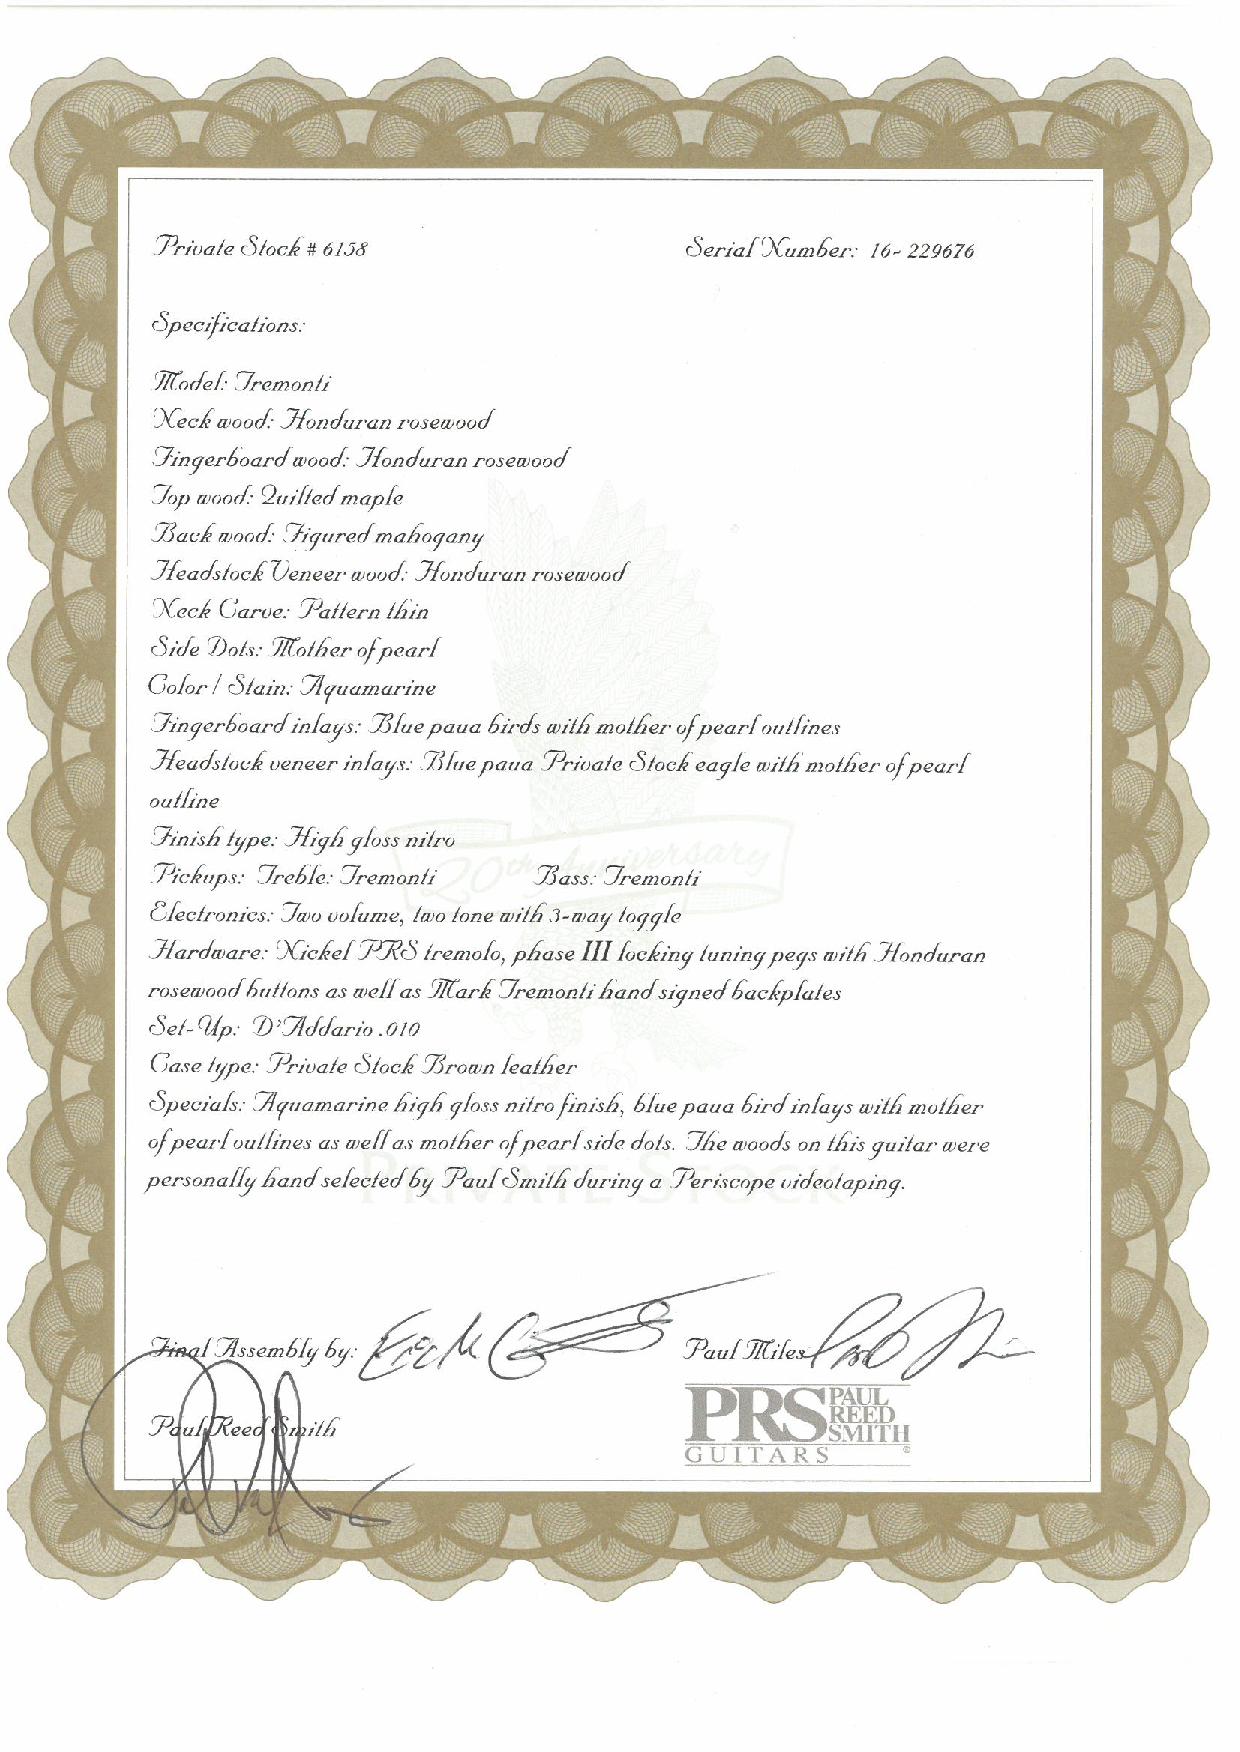 Private Stock # 6158 Serial Number: 16-229676
Specifications:
Model: Tremonti
Neck wood: Honduran rosewood
Fingerboard wood: Honduran rosewood
Top wood: Quilted maple
Back wood: Figured mahogany
Headstock Veneer wood: Honduran rosewood
Neck Carve: Pattern thin
Side Dots: Mother of pearl
Color / Stain: Aquamarine
Fingerboard inlays: Blue paua birds with mother of pearl outlines
Headstock veneer inlays: Blue paua Private Stock eagle with mother of pearl
outline
Finish type: High gloss nitro
20th Anniversary
Pickups: Treble: Tremonti Bass: Tremonti
Electronics: Two volume, two tone with 3-way toggle
Hardware: Nickel PRS tremolo, phase III locking tuning pegs with Honduran
rosewood buttons as well as Mark Tremonti hand signed backplates
Set-Up: D'Addario .010
Case type: Private Stock Brown leather
Specials: Aquamarine high gloss nitro finish, blue paua bird inlays with mother
of pearl outlines as well as mother of pearl side dots. The woods on this guitar were
PRIVATE STOCK
personally hand selected by Paul Smith during a Periscope videotaping.
Final Assembly by: Paul Miles
Paul Reed Smith
PRS PAUL REED SMITH
GUITARS ®